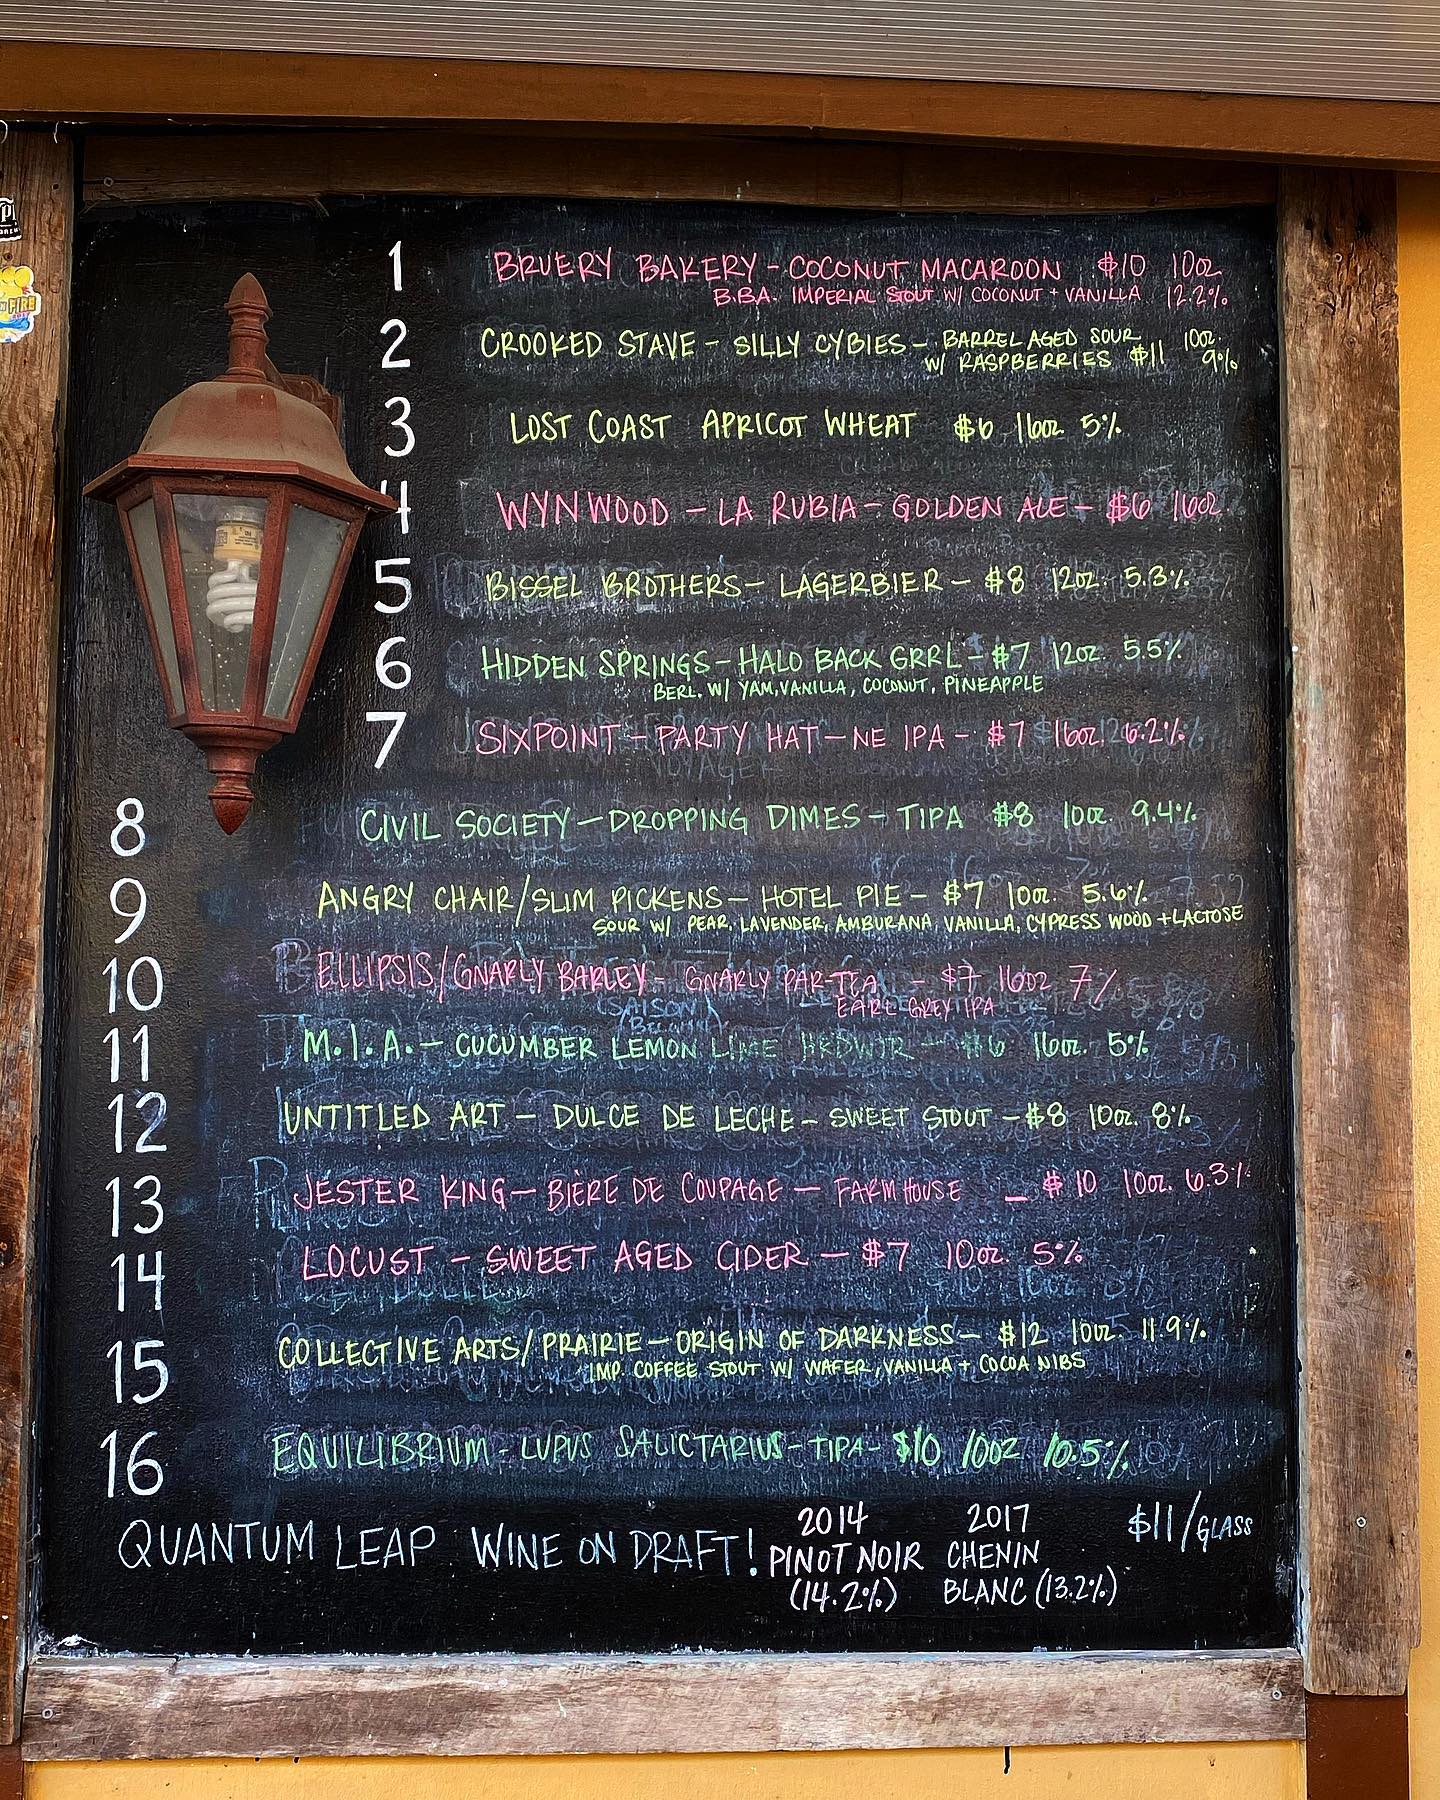 1 BRUERY BAKERY - COCONUT MACAROON $10 10oz
B.B.A. IMPERIAL STOUT W/ COCONUT + VANILLA 12.2%
2 CROOKED STAVE - SILLY CYBIES - BARREL AGED SOUR 10oz.
W/ RASPBERRIES $11 9%
3 LOST COAST APRICOT WHEAT $6 16oz 5%
4 WYNWOOD - LA RUBIA - GOLDEN ALE - $6 16oz
5 BISSEL BROTHERS - LAGERBIER - $8 12oz. 5.3%
6 HIDDEN SPRINGS - HALO BACK GRRL - $7 12oz. 5.5%
BERL. W/ YAM, VANILLA, COCONUT, PINEAPPLE
7 SIXPOINT - PARTY HAT - NE IPA - $7 16oz. 6.2%
VOYAGER
8 CIVIL SOCIETY - DROPPING DIMES - TIPA $8 10oz. 9.4%
9 ANGRY CHAIR/SLIM PICKENS - HOTEL PIE - $7 10oz. 5.6%
SOUR W/ PEAR, LAVENDER, AMBURANA, VANILLA, CYPRESS WOOD + LACTOSE
10 ELLIPSIS/GNARLY BARLEY - GNARLY PAR-TEA - $7 16oz 7%
EARL GREY IPA
(SAISON)
(BELGIUM)
11 M.I.A. - CUCUMBER LEMON LIME HRDWTR - $6 16oz. 5%
12 UNTITLED ART - DULCE DE LECHE - SWEET STOUT - $8 10oz. 8%
13 JESTER KING - BIÈRE DE COUPAGE - FARMHOUSE - $10 10oz. 6.3%
14 LOCUST - SWEET AGED CIDER - $7 10oz. 5%
15 COLLECTIVE ARTS/PRAIRIE - ORIGIN OF DARKNESS - $12 10oz. 11.9%
IMP. COFFEE STOUT W/ WAFER, VANILLA + COCOA NIBS
16 EQUILIBRIUM - LUPUS SALICTARIUS - TIPA - $10 10oz 10.5%
QUANTUM LEAP WINE ON DRAFT! 2014 2017 $11/GLASS
PINOT NOIR CHENIN
(14.2%) BLANC (13.2%)